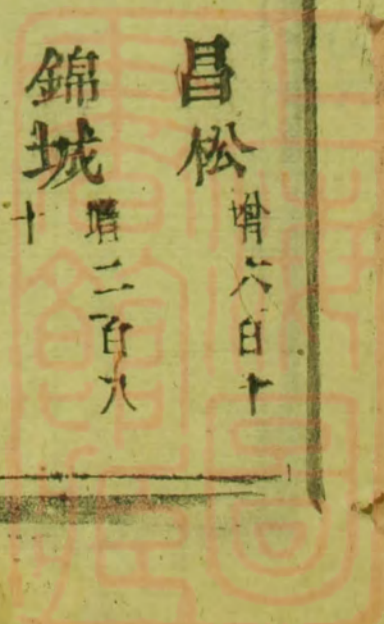 昌松 增六百十
錦城 增二百八
十